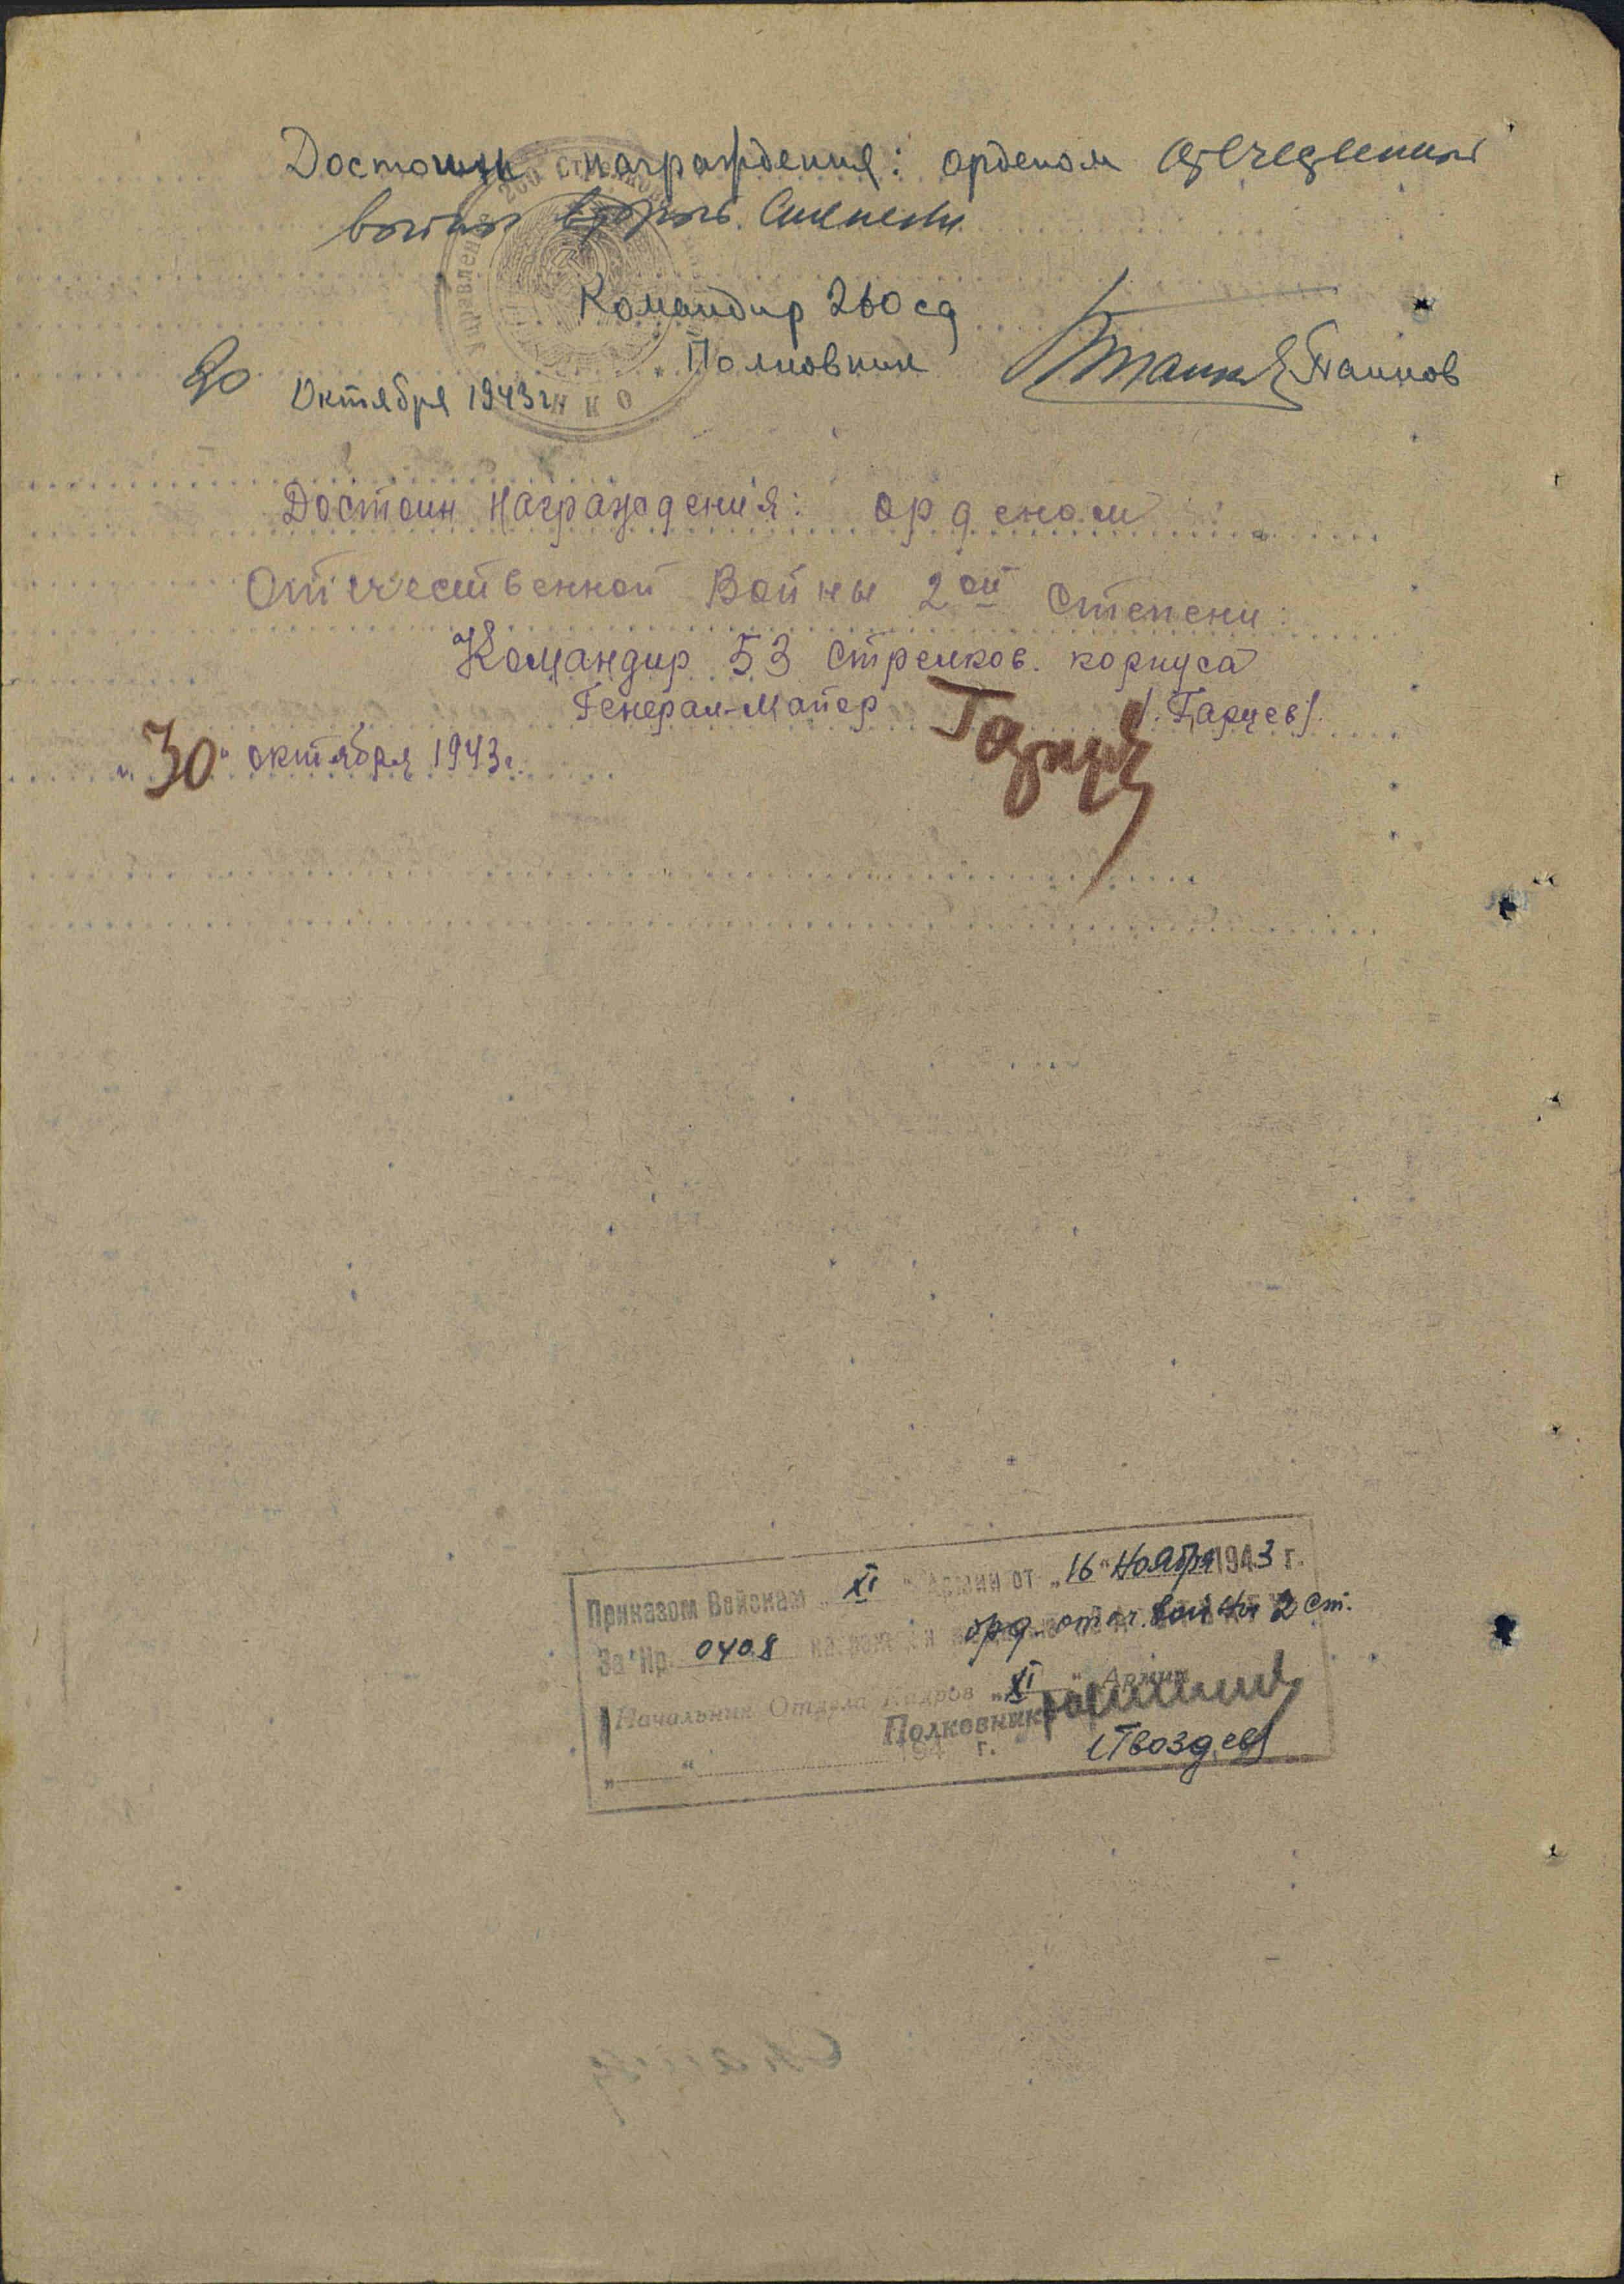 Достоин награждения: орденом Отечественной
войны второй степени
Командир 260 сд
Полковник
20 Октября 1943 г
НКО
Достоин награждения: орденом
Отечественной Войны 2ой степени:
Командир 53 Стрелков. корпуса
Генерал-Майор /Гарцев/.
„30“ октября 1943 г.
Приказом Войскам „XI“ Армии от „16“ Ноября 1943 г.
За Нр. 0408 орд. отеч. войны 2 ст.
Начальник Отдела Кадров „XI“ Армии
Полковник
„ “ 194 г. /Гвоздев/